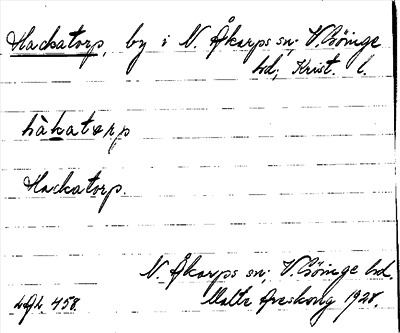 Hackatorp, by i N. Åkarps sn; V. Göinge
hd; Krist. l.
hàkatɵrp
Hackatorp.
N. Åkarps sn; V. Göinge hd.
458. Matts Areskoug 1928.